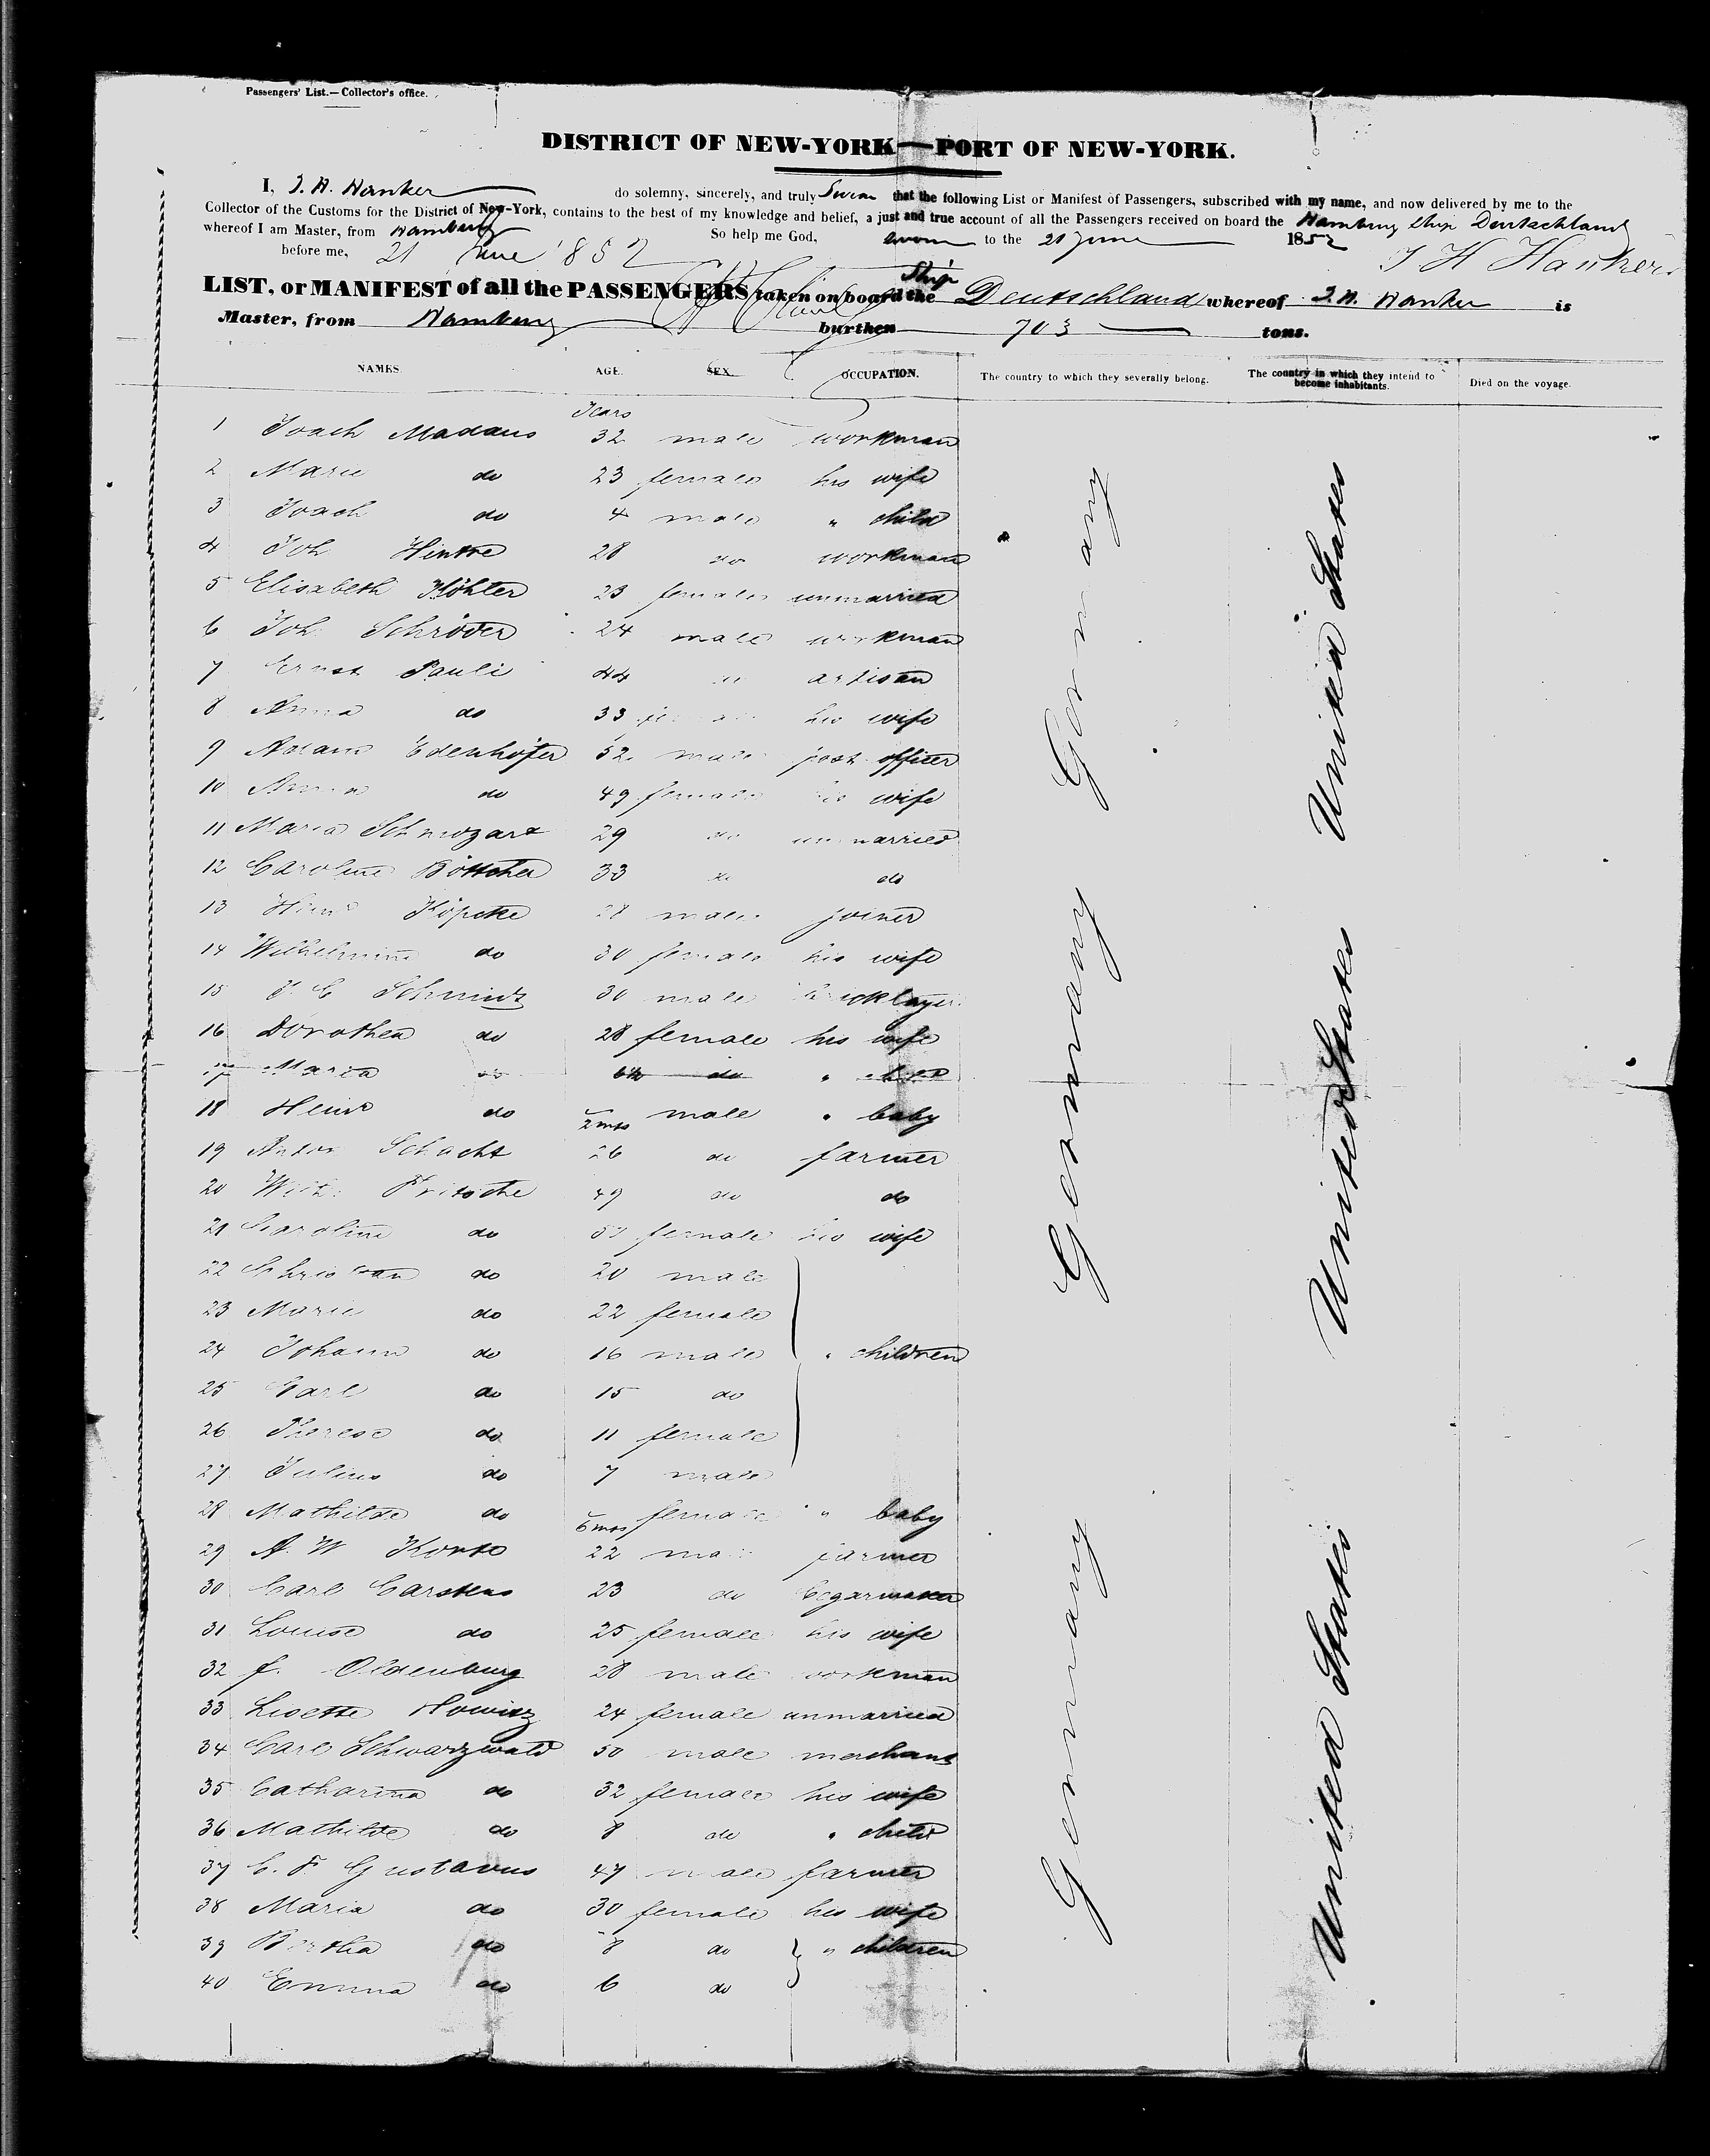 Passengers' List.—Collector's office.
DISTRICT OF NEW-YORK—PORT OF NEW-YORK.
I, J. H. Hanker do solemny, sincerely, and truly Swear that the following List or Manifest of Passengers, subscribed with my name, and now delivered by me to the
Collector of the Customs for the District of New-York, contains to the best of my knowledge and belief, a just and true account of all the Passengers received on board the Hamburg Ship Deutschland
whereof I am Master, from Hamburg So help me God, sworn to the 21 June 1852
before me, 21 June 1852 J H Hanker
LIST, or MANIFEST of all the PASSENGERS taken on board the Ship Deutschland whereof J. H. Hanker is
Master, from Hamburg burthen 703 tons.
NAMES. AGE. SEX. OCCUPATION. The country to which they severally belong. The country in which they intend to become inhabitants. Died on the voyage.
Years
1 Joach Madaus 32 male workman
2 Marie do 23 female his wife
3 Joach do 4 male " child
4 Joh Hintze 28 do workman
5 Elisabeth Köhler 23 female unmarried
6 Joh. Schröder 24 male workman
7 Ernst Pauli 44 do artisan
8 Anna do 33 female his wife
9 Adam Edenhöfer 52 male post officer
10 Anna do 49 female his wife
11 Maria 29 do unmarried
12 Caroline Böttcher 33 do do
13 Heinr Köpcke 28 male joiner
14 Wilhelmine do 30 female his wife
15 J. C. Schmidt 30 male bricklayer
16 Dorothea do 28 female his wife
17 Maria do 6½ do " child
18 Heinr do 2 mos male " baby
19 Anton Schacht 26 do farmer
20 Wilh. Fritsche 49 do do
21 Caroline do female his wife
22 Christian do 20 male
23 Marie do 22 female
24 Johann do 16 male " children
25 Carl do 15 do
26 Therese do 11 female
27 Julius do 7 male
28 Mathilde do 6 mos female " baby
29 A. W Korte 22 male farmer
30 Carl Carstens 23 do Cegarmaker
31 Louise do 25 female his wife
32 J. Oldenburg 28 male workman
33 Lisette Howitz 24 female unmarried
34 Carl Schwarzwald 50 male merchant
35 Catharina do 32 female his wife
36 Mathilde do 8 do " child
37 C. F. Gustavus 47 male farmer
38 Maria do 30 female his wife
39 Bertha do 8 do " children
40 Emma do 6 do
Germany
Germany
Germany
United States
United States
United States